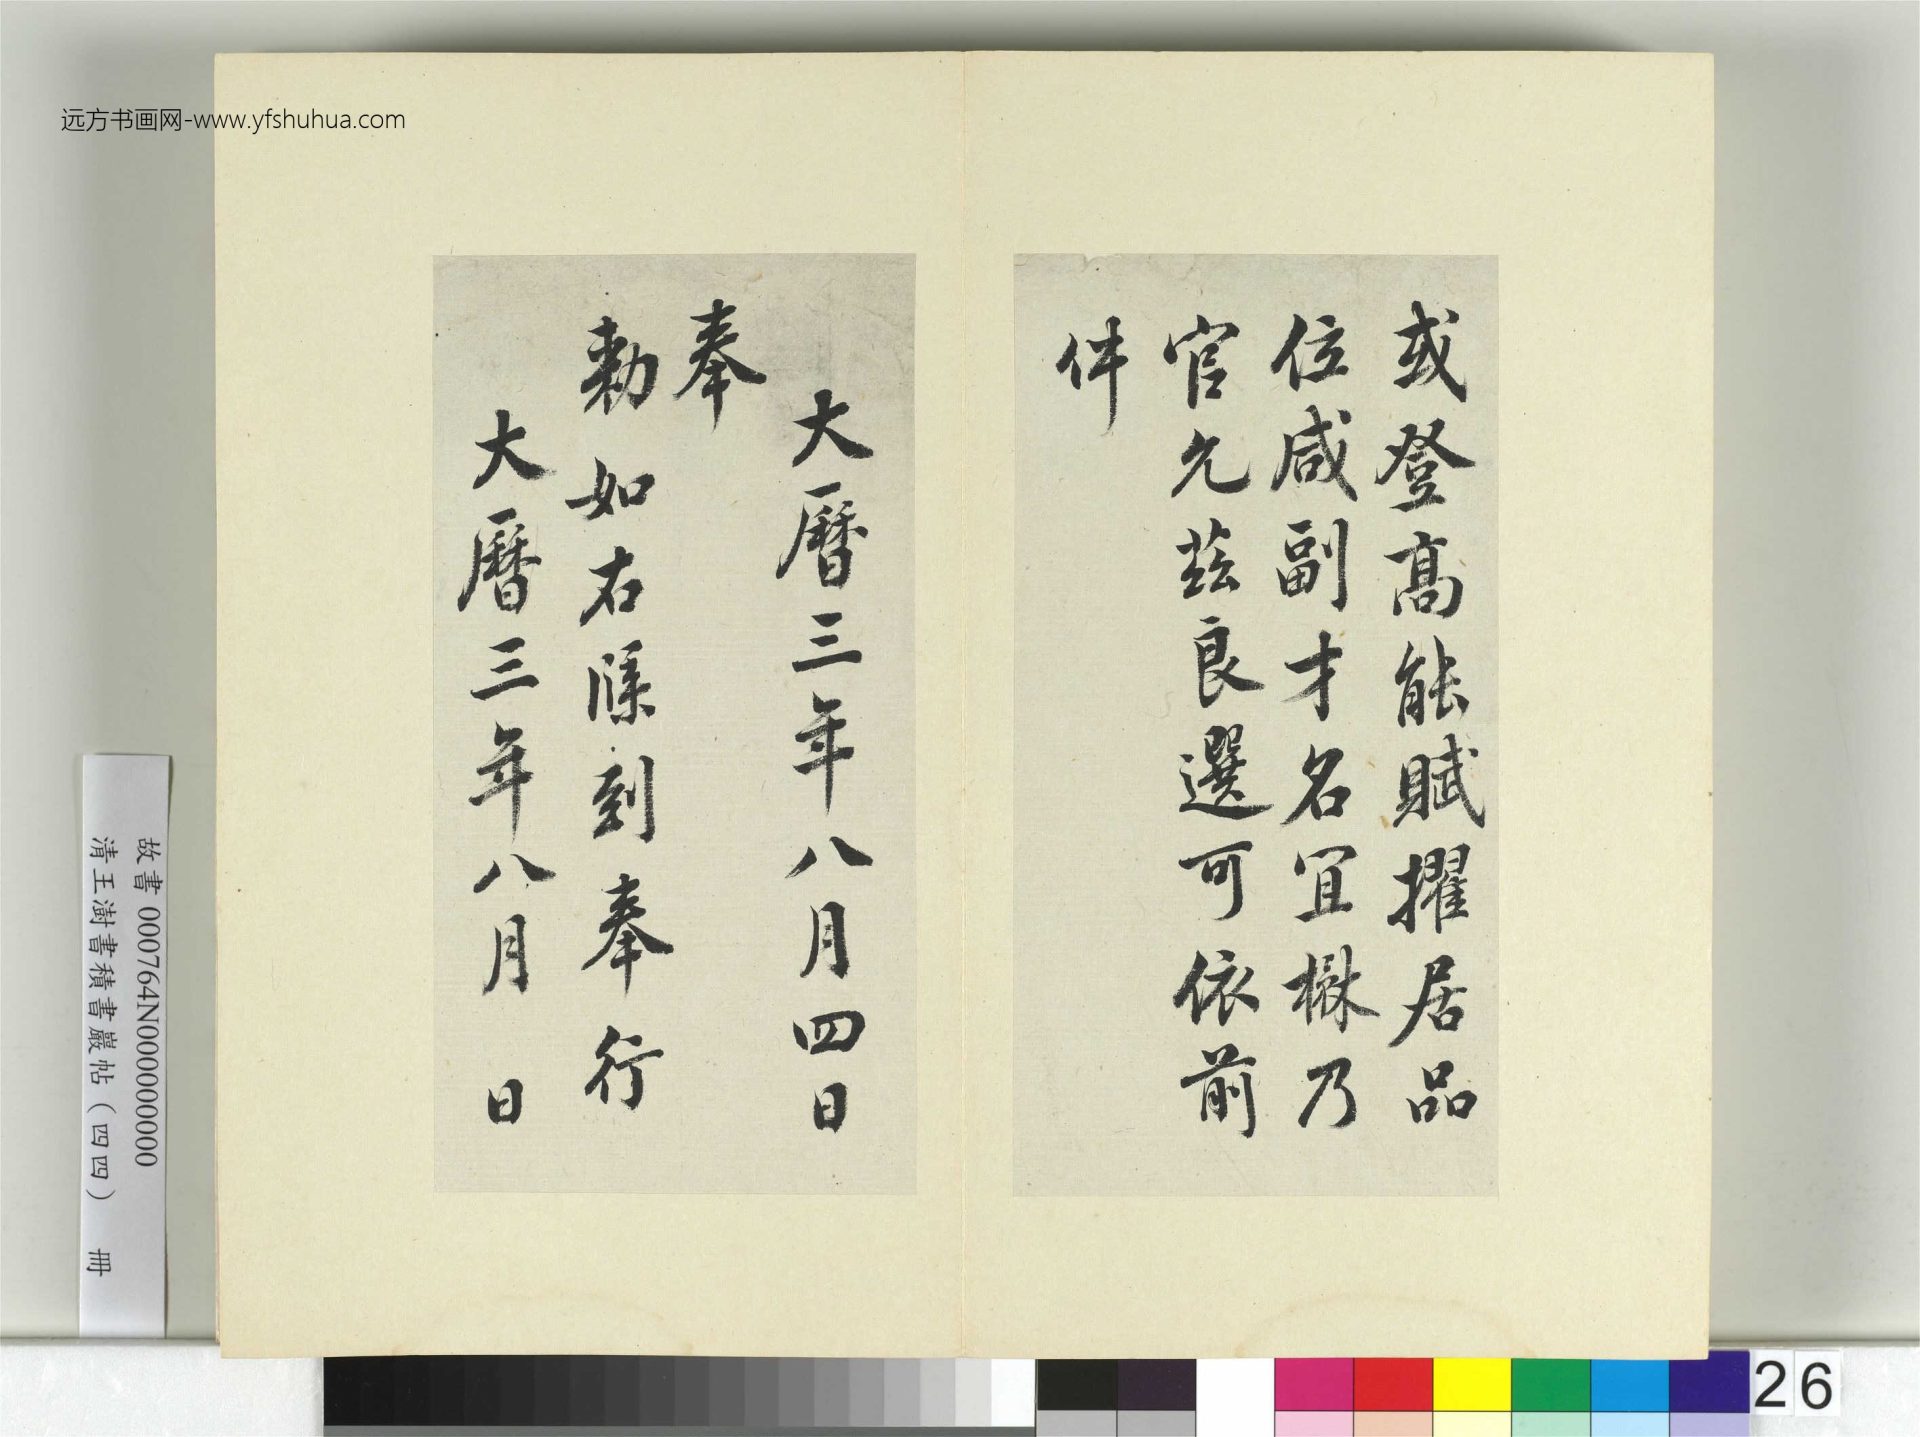 或登高能賦擢居品
位咸副才名宜楙乃
官允茲良選可依前
件
大曆三年八月四日
奉
勅如右牒到奉行
大曆三年八月　日
远方书画网-www.yfshuhua.com
故書 000764N000000000
清王澍書積書巖帖（四四）　冊
26